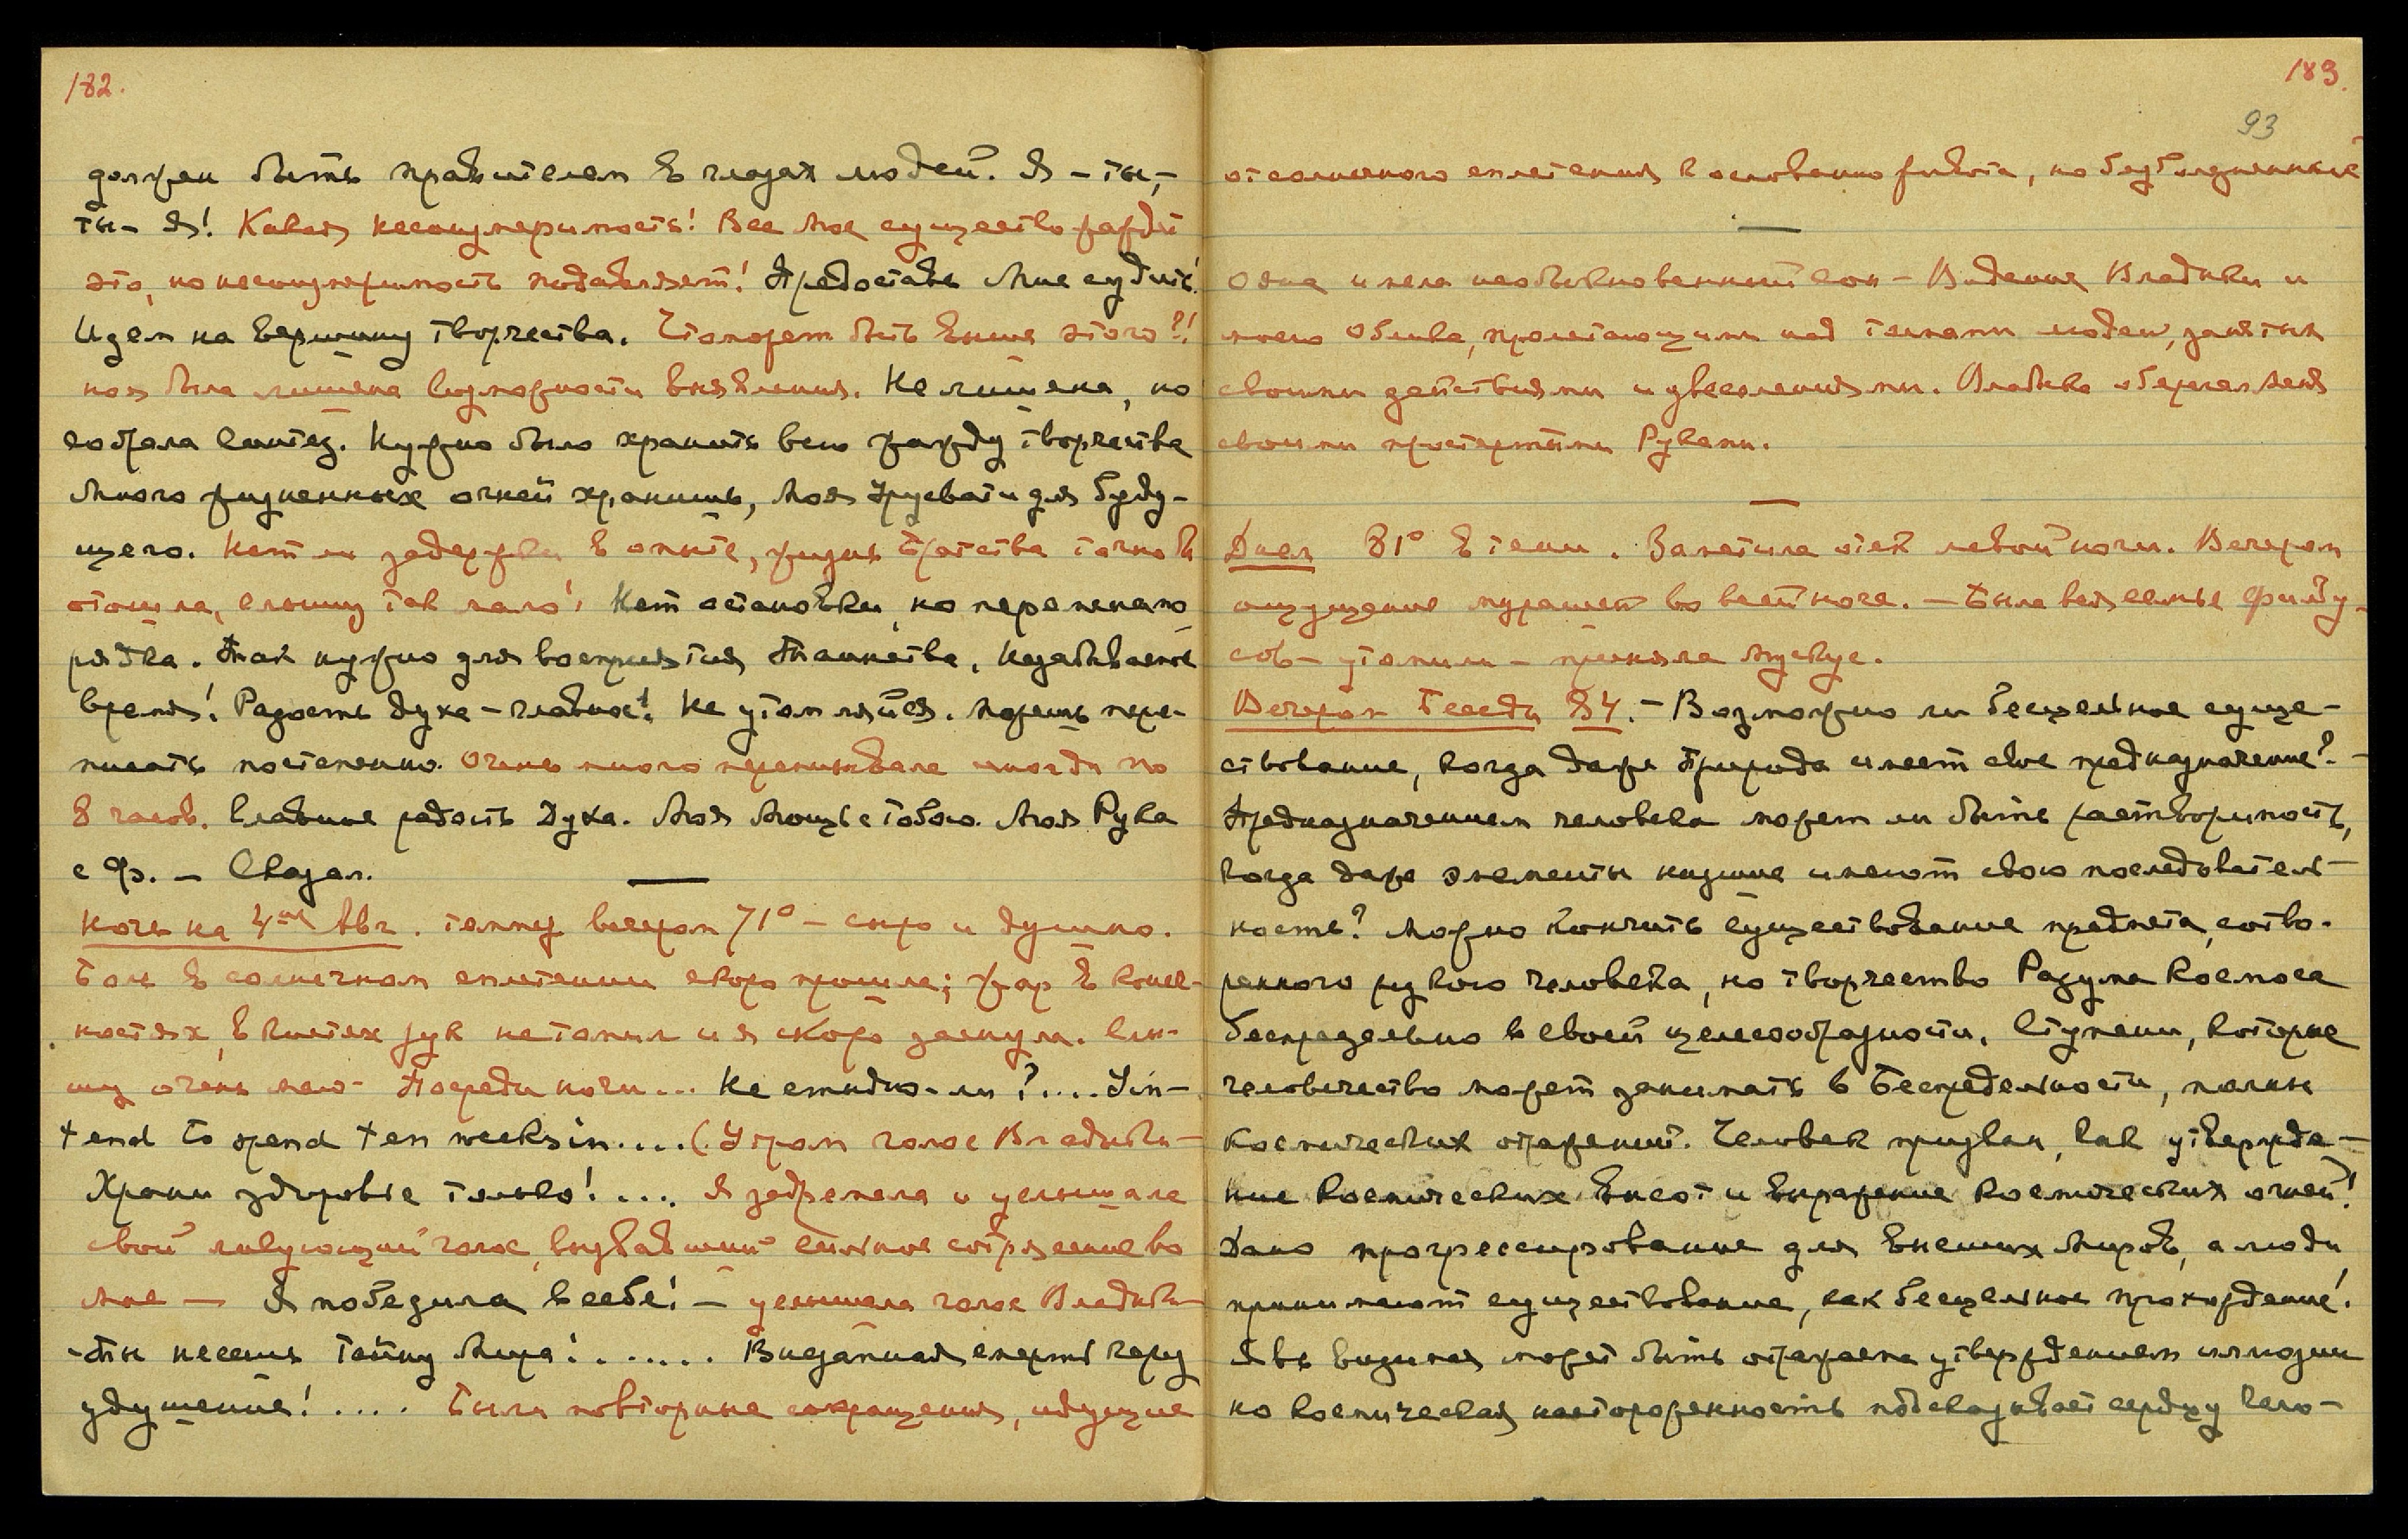 182.
должен быть правителем в глазах людей. Я – ты, –
ты – Я! Какая несоизмеримость! Все мое существо жаждет
это, но несоизмеримость подавляет! Предоставь Мне судить!
Идем на вершину творчества. Что может быть выше этого?!
но я была лишена возможности выявления. Не лишена, но
собрала синтез. Нужно было хранить всю жажду творчества
Много жизненных огней хранишь, Моя Урусвати для буду-
щего. Нет ли задержки в опыте, жизнь Братства точно бы
отошла, слышу так мало! Нет остановки, но перемена по
рядка. Так нужно для восприятия Таинства. Незабываемое
время! Радость духа – главное! Не утомляйся. Можешь пере-
писать постепенно. Очень много переписывала иногда по
8 часов. Главное радость Духа. Моя Мощь с тобою. Моя Рука
с Ф. – Сказал.
Ночь на 4ое Авг. темпер вечером 71° – сыро и душно.
Боль в солнечном сплетении скоро прошла; жар в конеч-
ностях, в кистях рук не томил и я скоро заснула. Слы-
шу очень мало – Посреди ночи... Не стыдно-ли?.... In-
tend to spend ten weeks in.... (Утром голос Владыки –
Храни здоровье только!.... Я задремала и услышала
свой ликующий голос, вызвавший сильное сотрясение во
мне — Я победила в себе! – услышала голос Владыки –
– Ты несешь тайну Мира!...... Внезапная смерть через
удушение!.... Были повторные сокращения, идущие
183.
93
от солнечного сплетения к основанию живота, но безболезненные
—
Одна имела необыкновенный сон – Видение Владыки и
моего Облика, пролетающими над толпами людей, занятых
своими действиями и увеселениями. Владыка оберегал меня
своими простертыми Руками.
—
Днем 81° в тени. Заметила отек левой ноги. Вечером
ощущение мурашек во всей ноге. – Была вся семья
– утомили – приняла мускус.
Вечером Беседа 84. – Возможно ли бесцельное суще-
ствование, когда даже Природа имеет свое предназначение? –
Предназначением человека может ли быть растворимость,
когда даже элементы низшие имеют свою последователь-
ность? Можно кончить существование предмета, сотво-
ренного рукою человека, но творчество Разума Космоса
беспредельно в своей целесообразности. Ступени, которые
человечество может занимать в Беспредельности, полны
космических отражений. Человек призван, как утвержде-
ние космических высот и выражение космических огней!
Дано прогрессирование для внешних миров, а люди
принимают существование, как бесцельное прохождение!
Явь видимая может быть отражаема утверждением иллюзии
но космическая настороженность подсказывает сердцу чело-